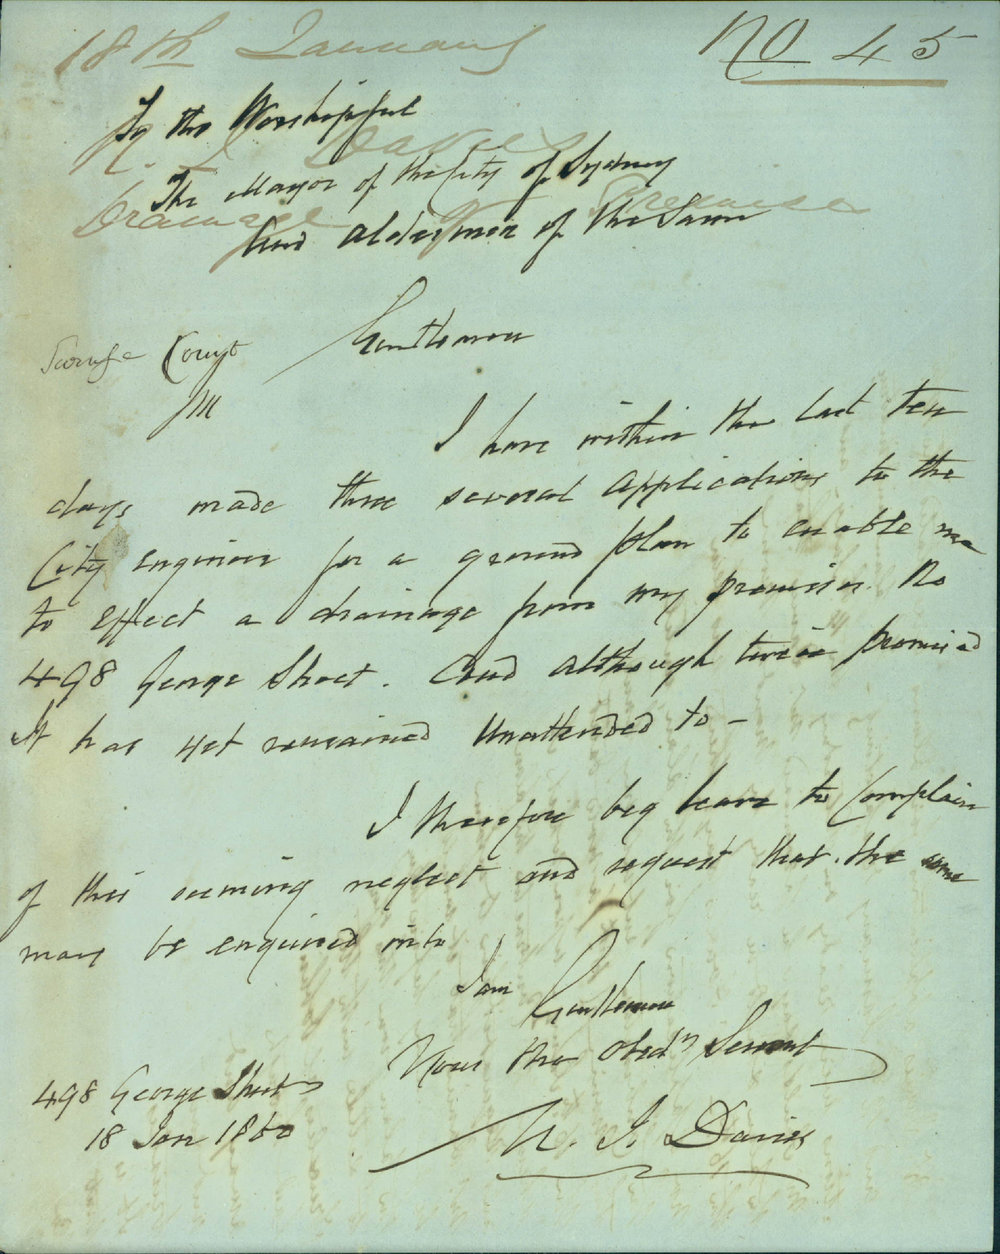 18th January
No 45
To the Worshipful
Davies
The Mayor of the City of Sydney
Drainage Premises
And Aldermen of the Same
Gentlemen
I have within the last ten
days made three several applications to the
City Engineer for a ground plan to enable me
to effect a drainage from my premises No
498 George Street. And although twice promised
It has yet remained Unattended to -
I therefore beg leave to Complain
of this seeming neglect and request that the same
may be enquired into
I am
Gentlemen
Your Obedn Servant
498 George Street
18 Jan 1860
Davies